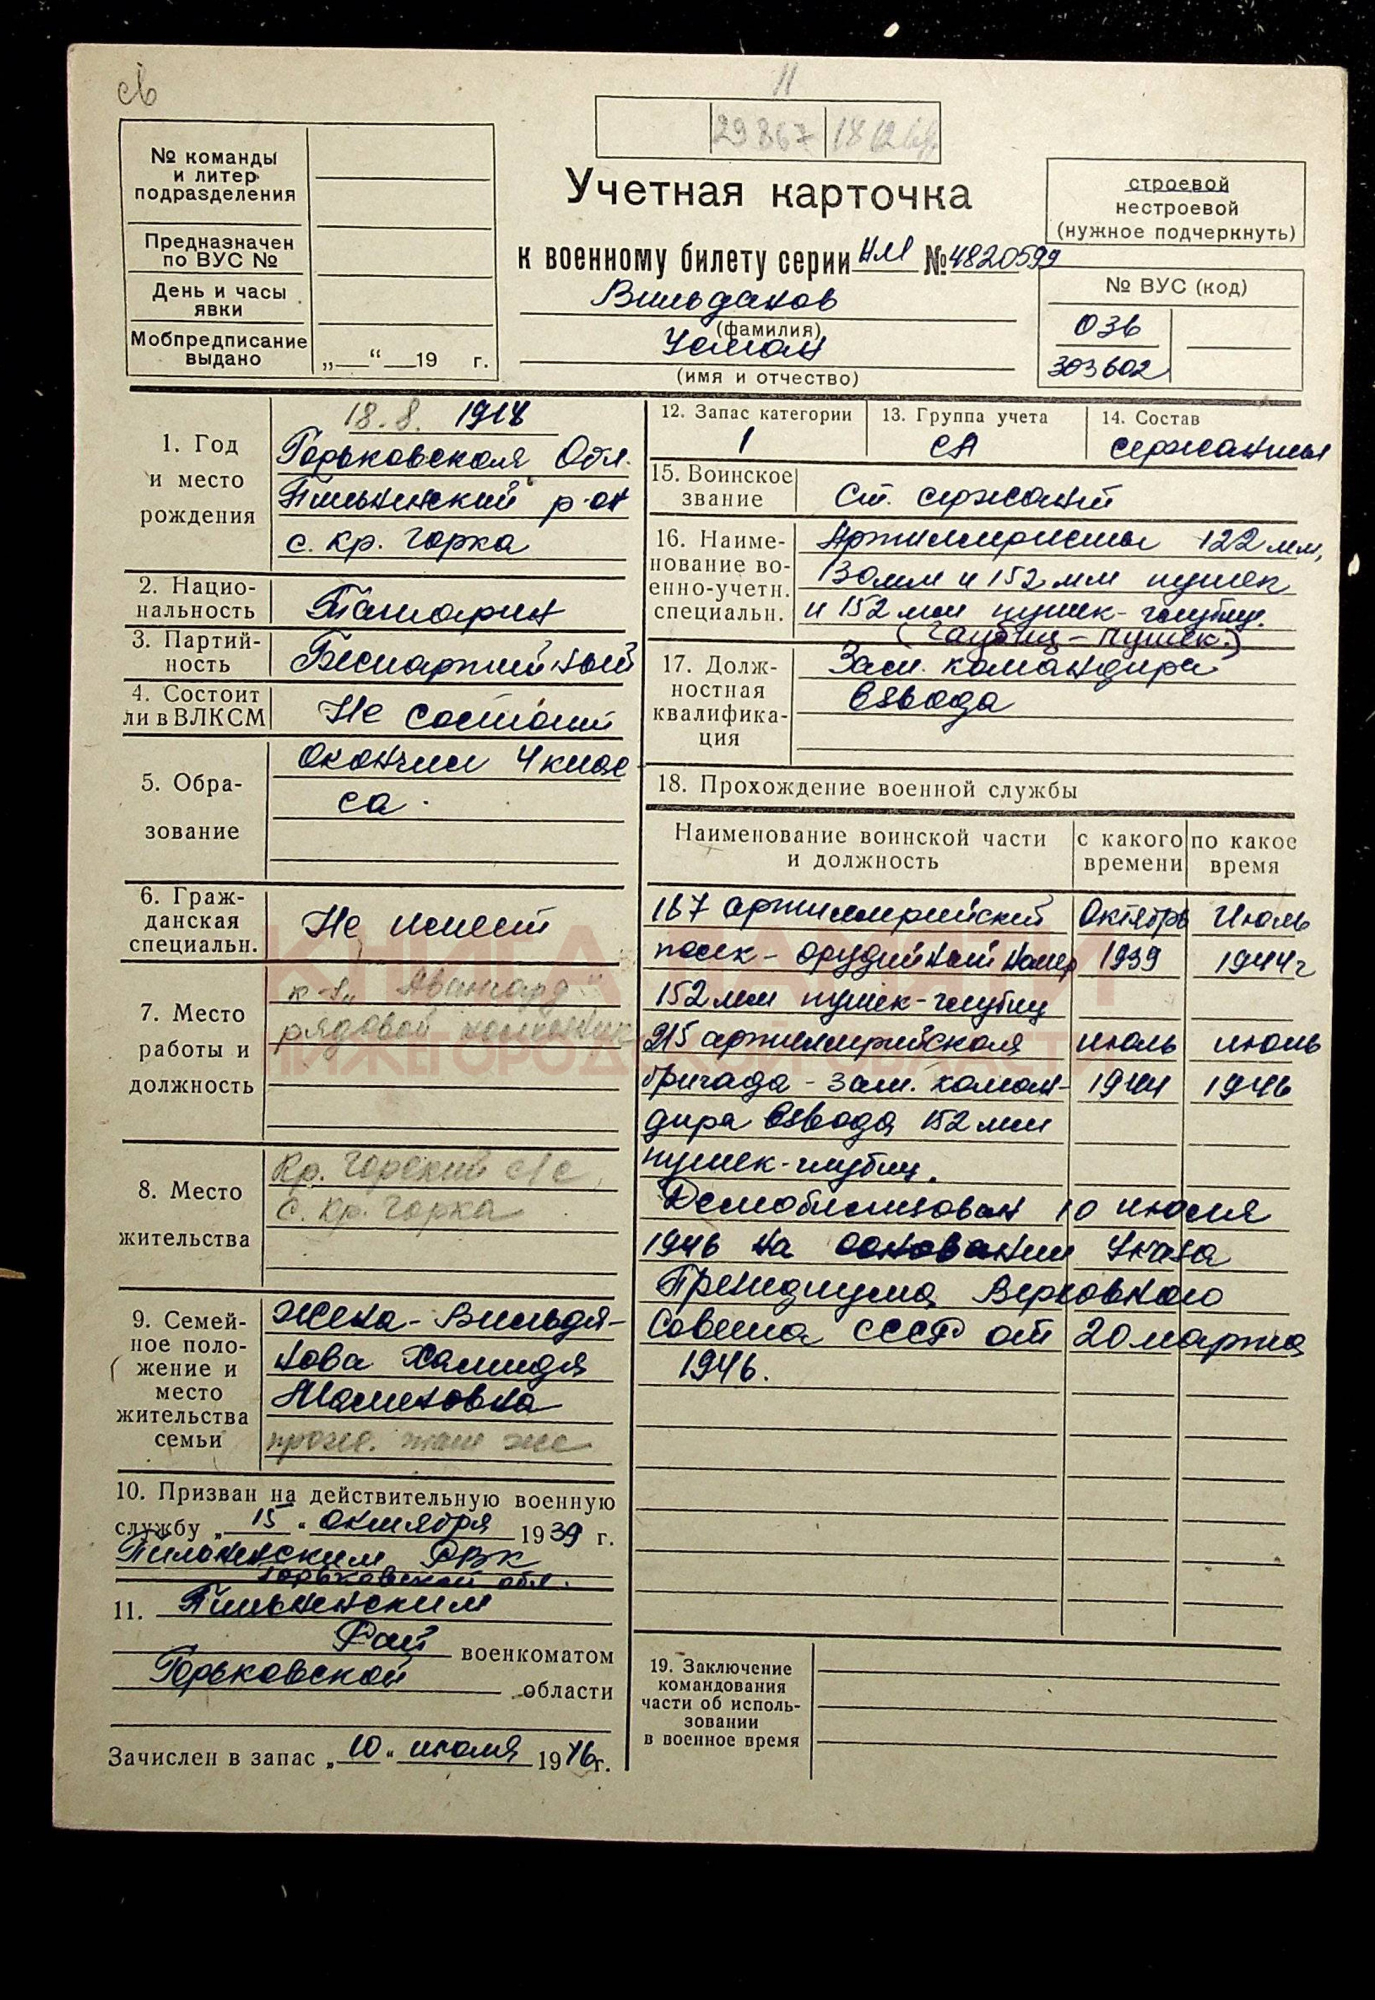 св
11
29867 1812
№ команды
и литер
подразделения
Предназначен
по ВУС №
День и часы
явки
Мобпредписание
выдано
„ “ 19 г.
Учетная карточка
к военному билету серии НМ № 4820599
Вильданов
(фамилия)
Усман
(имя и отчество)
строевой
нестроевой
(нужное подчеркнуть)
№ ВУС (код)
036
303602
1. Год
и место
рождения
18.8. 1918
Горьковская Обл.
Пильнинский р-он
с. Кр. Горка
2. Нацио-
нальность
Татарин
3. Партий-
ность
Беспартийный
4. Состоит
ли в ВЛКСМ
Не состоит
5. Обра-
зование
Окончил 4 клас
са.
6. Граж-
данская
специальн.
Не имеет
7. Место
работы и
должность
к-з „Авангард“
рядовой колхозник
8. Место
жительства
Кр. Горский с/с
с. Кр. Горка
9. Семей-
ное поло-
жение и
место
жительства
семьи
Жена - Вильда-
нова Хамидя
прож. там же
10. Призван на действительную военную
службу „15“ октября 1939 г.
Пильнинским РВК
Горьковской обл.
11. Пильнинским
Рай военкоматом
Горьковской области
Зачислен в запас „10“ июля 1946 г.
12. Запас категории
1
13. Группа учета
СА
14. Состав
сержанты
15. Воинское
звание
Ст. сержант
16. Наиме-
нование во-
енно-учетн.
специальн.
Артиллеристы 122 мм,
130мм и 152 мм пушек
и 152 мм пушек-гаубиц.
(Гаубиц-пушек.)
17. Долж-
ностная
квалифика-
ция
Зам. командира
взвода
18. Прохождение военной службы
Наименование воинской части
и должность
с какого
времени
по какое
время
167 артиллерийский Октябрь Июль
полк - орудийный номер 1939 1944г
152 мм пушек-гаубиц
215 артиллерийская июль июль
бригада - зам. коман- 1944 1946
дира взвода 152 мм
пушек-гаубиц.
Демобилизован 10 июля
1946 на основании Указа
Президиума Верховного
Совета СССР от 20 марта
1946.
19. Заключение
командования
части об исполь-
зовании
в военное время
КНИГА ПАМЯТИ
НИЖЕГОРОДСКОЙ ОБЛАСТИ